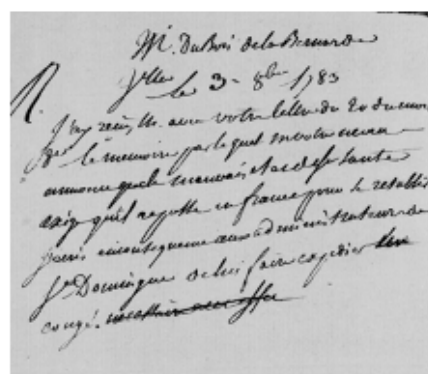 M. DuBois de la Bernarde
Vlles le 3 - 8bre 1783
R.
J'ay reçu, M. avec votre lettre du 20 du mois
der le mémoire par lequel M. votre neveu
annonce que le mauvais état de sa santé
exige qu'il repasse en france pour le rétablir
j'écris en conséquence aux administrateurs de
St Domingue de lui faire expédier un
congé.